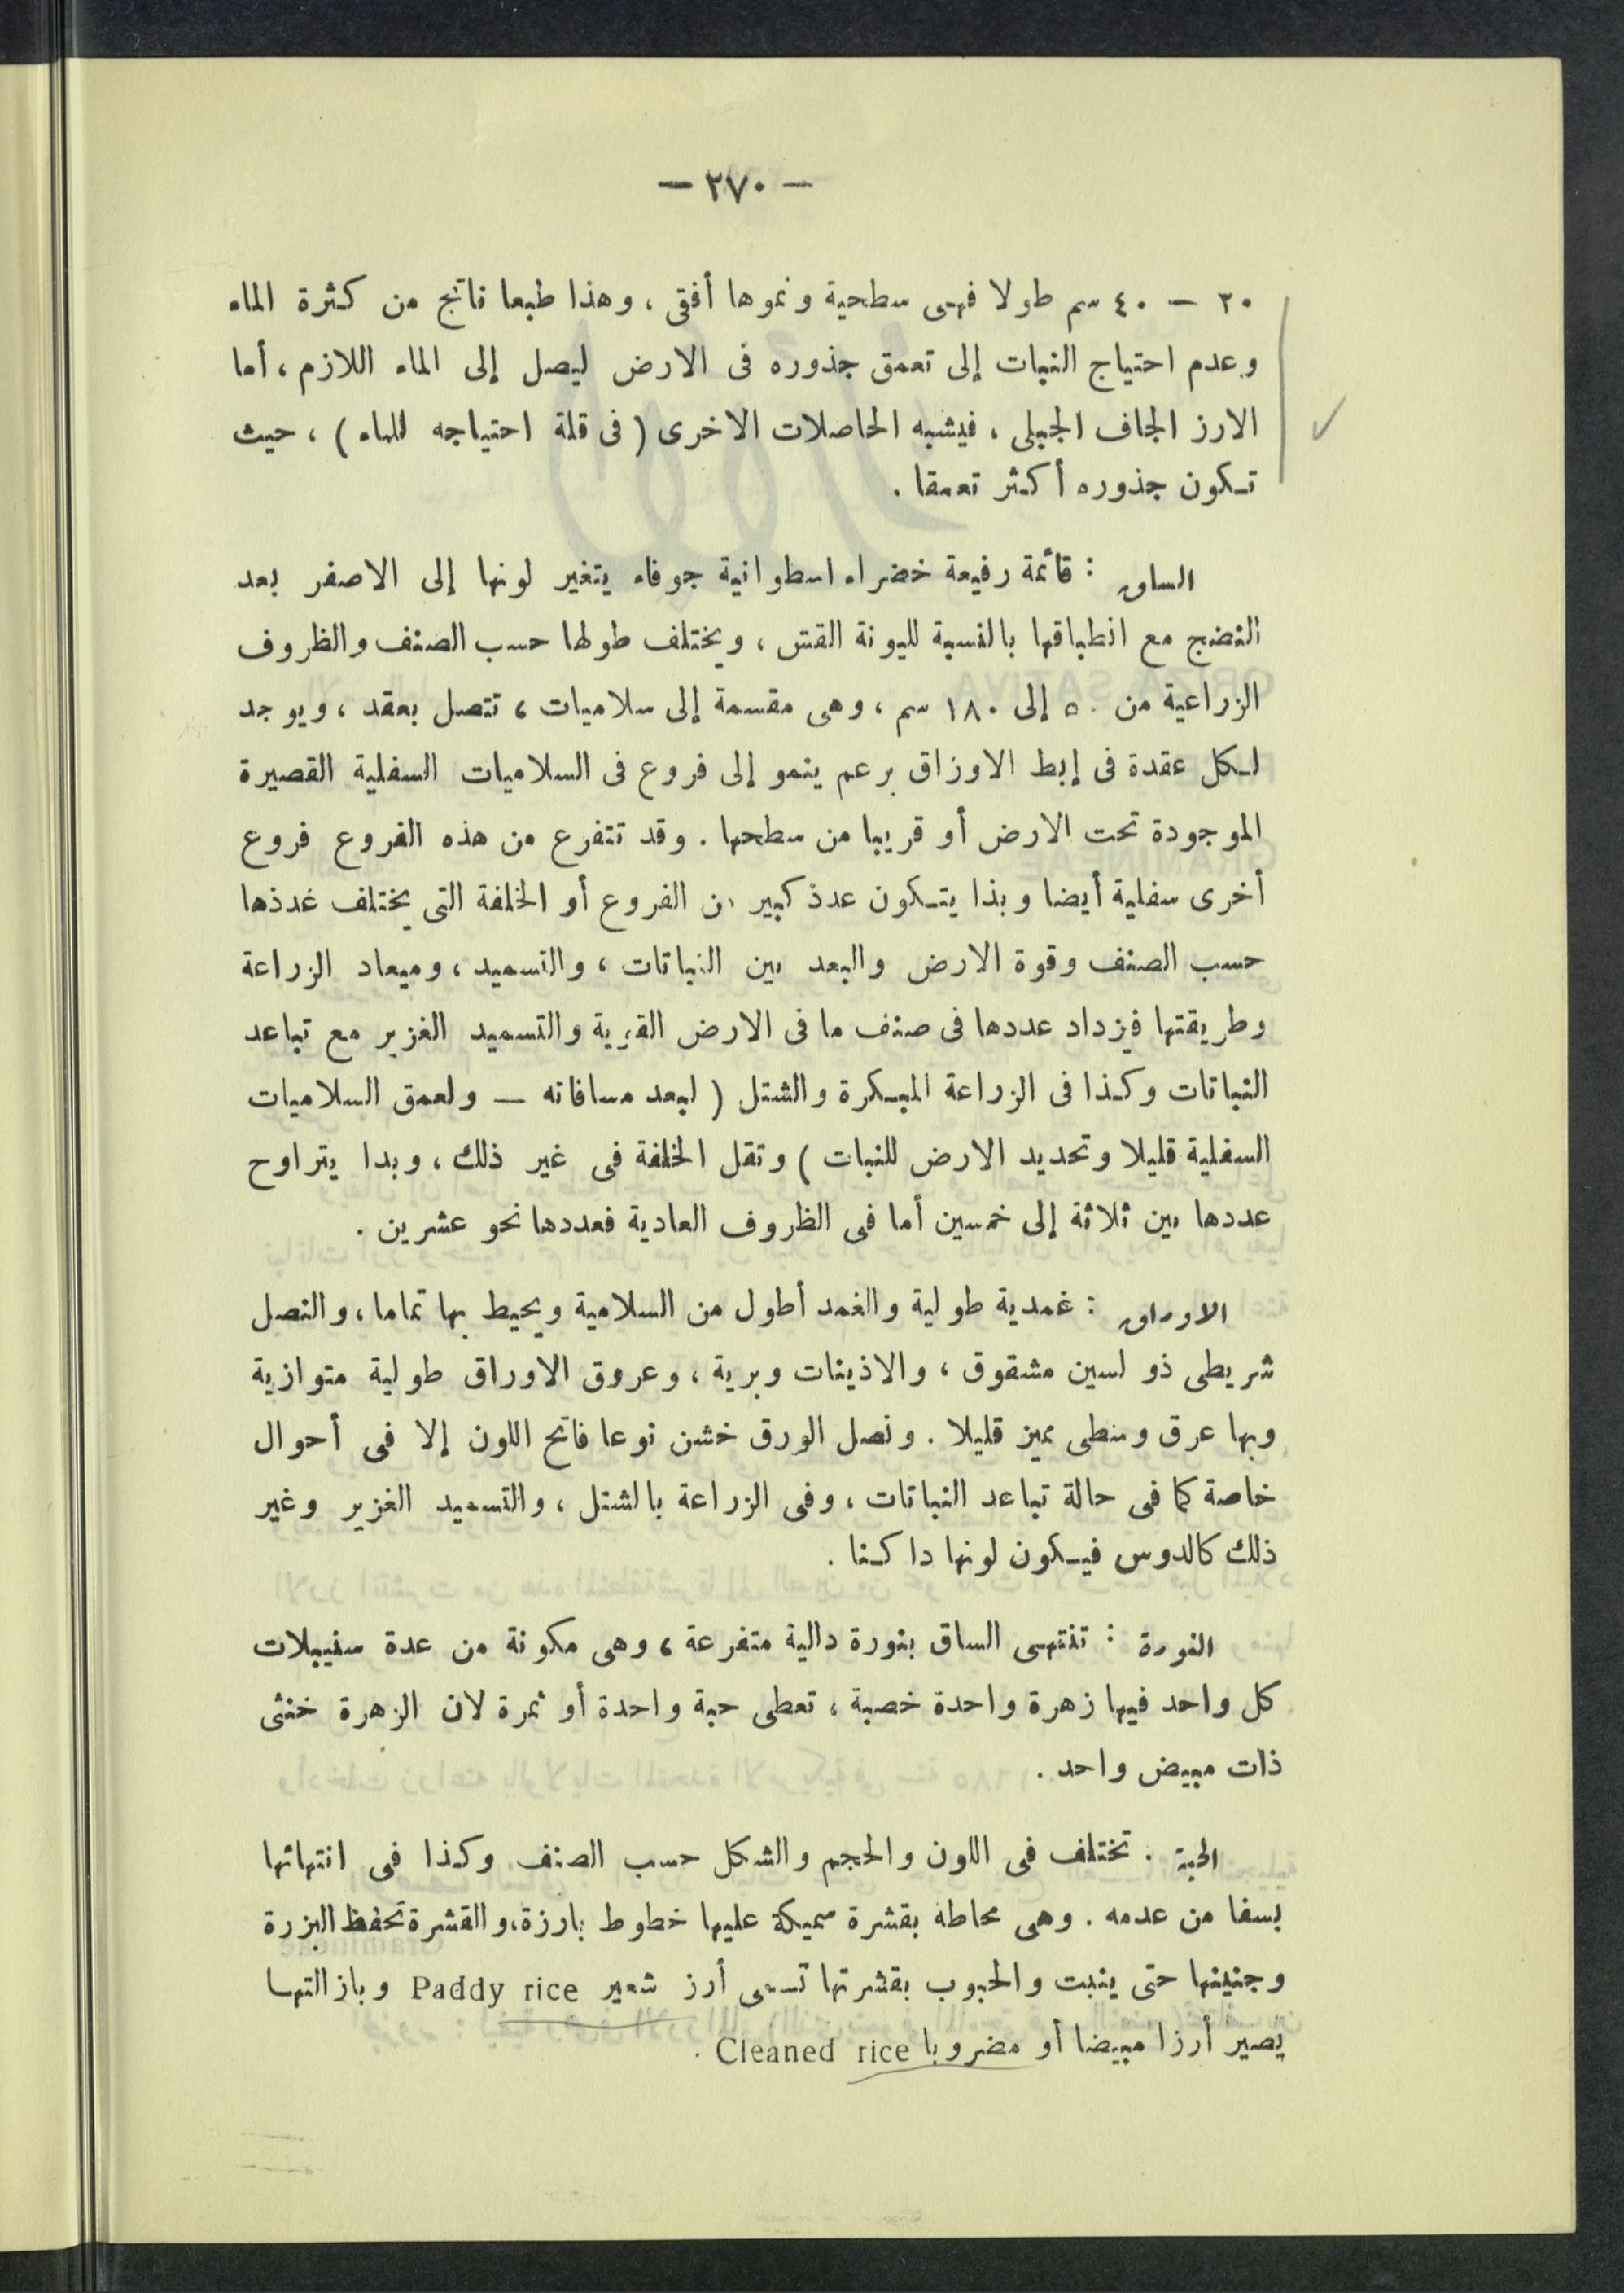 — ٢٧٠ —
٢٠ — ٤٠ سم طولا فهى سطحية ونموها أفقى ، وهذا طبعا ناتج من كثرة الماء
وعدم احتياج النبات إلى تعمق جذوره فى الارض ليصل إلى الماء اللازم ، أما
الارز الجاف الجبلى ، فيشبه الحاصلات الاخرى ( فى قلة احتياجه للماء ) ، حيث
تكون جذوره أكثر تعمقا .
الساق : قائمة رفيعة خضراء اسطوانية جوفاء يتغير لونها إلى الاصفر بعد
النضج مع انطباقها بالنسبة لليونة القش ، ويختلف طولها حسب الصنف والظروف
الزراعية من ٥٠ إلى ١٨٠ سم ، وهى مقسمة إلى سلاميات ، تتصل بعقد ، ويوجد
لكل عقدة فى إبط الاوزاق برعم ينمو إلى فروع فى السلاميات السفلية القصيرة
الموجودة تحت الارض أو قريبا من سطحها . وقد تتفرع من هذه الفروع فروع
أخرى سفلية أيضا وبذا يتكون عدذ كبير من الفروع أو الخلفة التى يختلف غدذها
حسب الصنف وقوة الارض والبعد بين النباتات ، والتسميد ، وميعاد الزراعة
وطريقتها فيزداد عددها فى صنف ما فى الارض القوية والتسميد الغزير مع تباعد
النباتات وكذا فى الزراعة المبكرة والشتل ( لبعد مسافاته — ولعمق السلاميات
السفلية قليلا وتحديد الارض للنبات ) وتقل الخلفة فى غير ذلك ، وبدا يتراوح
عددها بين ثلاثة إلى خمسين أما فى الظروف العادية فعددها نحو عشرين .
الاوراق : غمدية طولية والغمد أطول من السلامية ويحيط بها تماما ، والنصل
شريطى ذو لسين مشقوق ، والاذينات وبرية ، وعروق الاوراق طولية متوازية
وبها عرق وسطى مميز قليلا . ونصل الورق خشن نوعا فاتح اللون إلا فى أحوال
خاصة كما فى حالة تباعد النباتات ، وفى الزراعة بالشتل ، والتسميد الغزير وغير
ذلك كالدوس فيكون لونها داكنا .
النورة : تنتهى الساق بنورة دالية متفرعة ، وهى مكونة من عدة سنيبلات
كل واحد فيها زهرة واحدة خصبة ، تعطى حبة واحدة أو ثمرة لان الزهرة خنثى
ذات مبيض واحد .
الحبة . تختلف فى اللون والحجم والشكل حسب الصنف وكذا فى انتهائها
بسفا من عدمه . وهى محاطة بقشرة سميكة عليها خطوط بارزة، والقشرة تحفظ البزرة
وجنينها حتى ينبت والحبوب بقشرتها تسمى أرز شعير Paddy rice وبازالتها
يصير أرزا مبيضا أو مضروبا Cleaned rice .